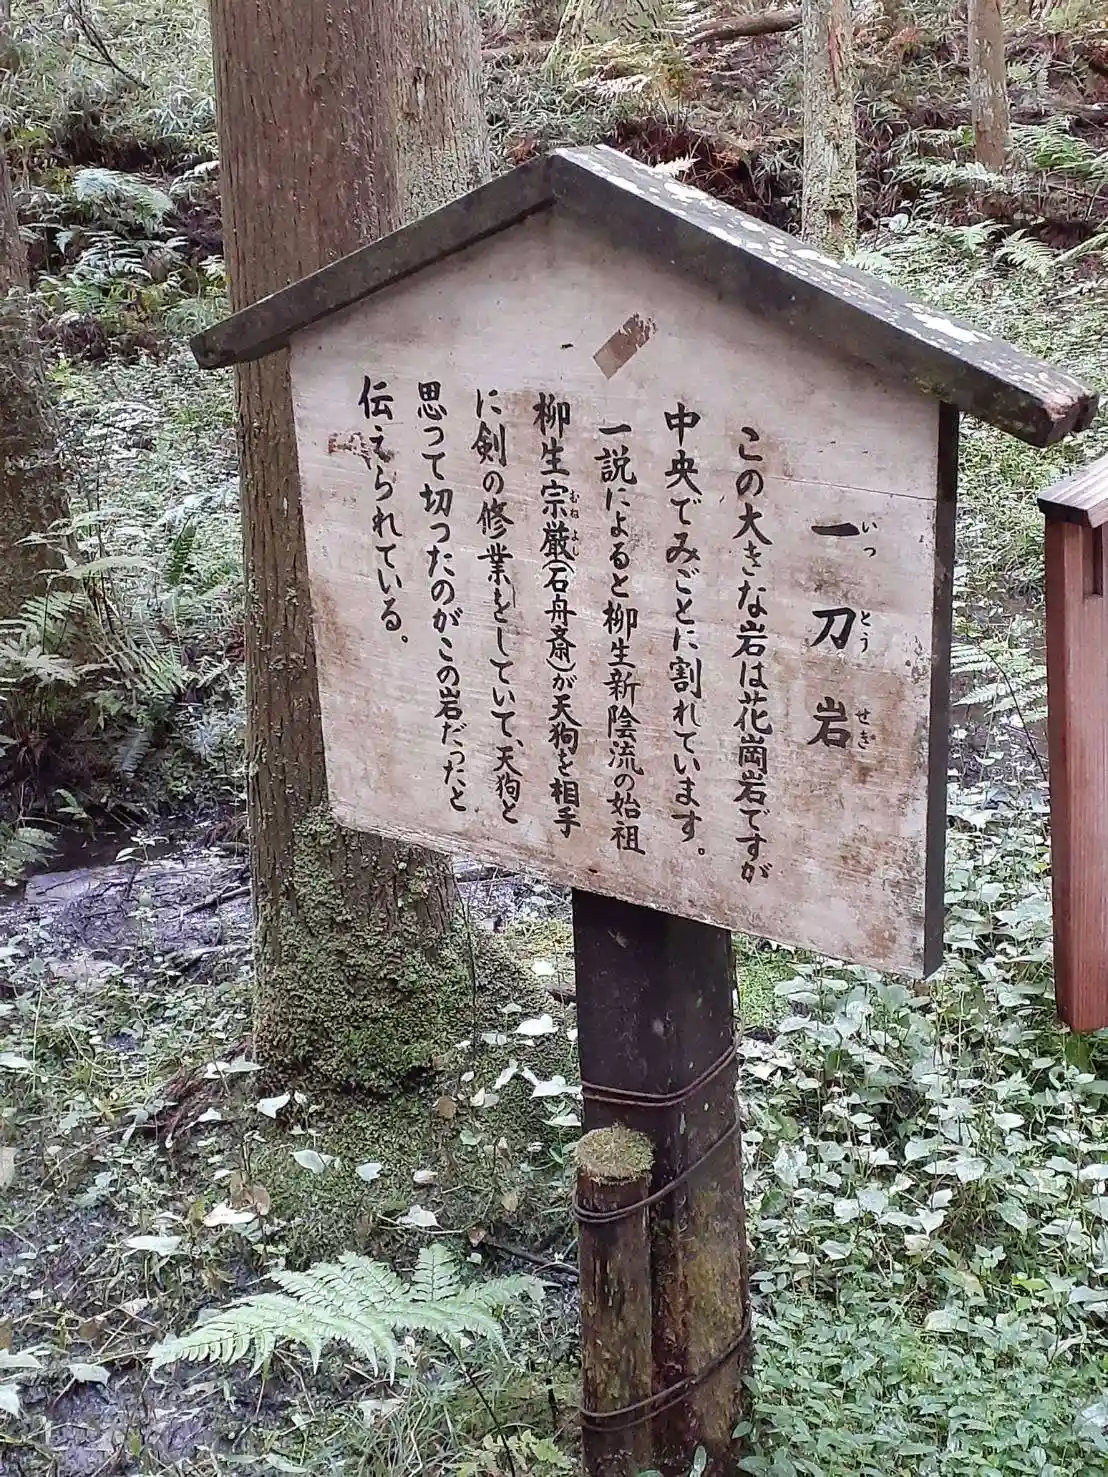 一刀岩
いっとうせき
この大きな岩は花崗岩ですが
中央でみごとに割れています。
一説によると柳生新陰流の始祖
柳生宗厳(石舟斎)が天狗を相手
むねよし
に剣の修業をしていて、天狗と
思って切ったのがこの岩だったと
伝えられている。